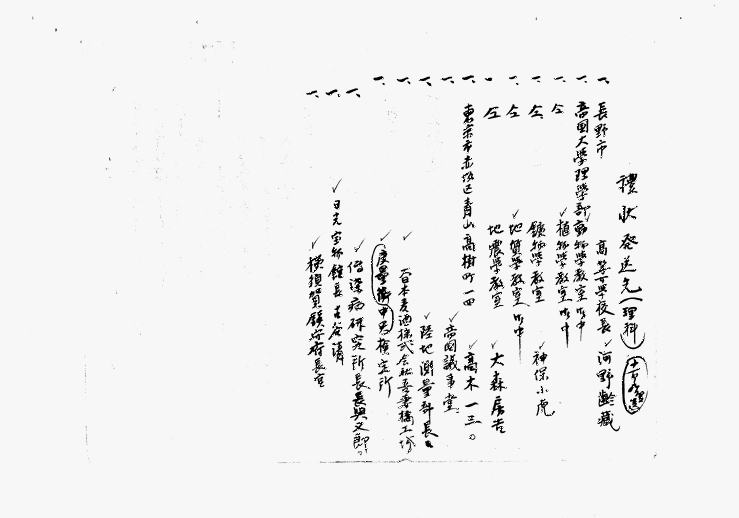 禮狀発送先(理科)
一、長野市 高等女学校長 河野齢蔵
一、帝国大学理学部動物学教室 御中
一、仝 植物学教室 御中
一、仝 鑛物学教室 神保小虎
一、仝 地質学教室 御中
一、仝 地震学教室 大森房吉
一、東京市赤坂区青山高樹町一四 高木一三〇
一、帝国議事堂
一、陸地測量部長
一、大日本麦酒株式会社吾妻橋工場
一、度量衡中央検定所
一、傳染病研究所長長與又郎
一、日光宝物館長 古谷清
一、横須賀鎮守府長官